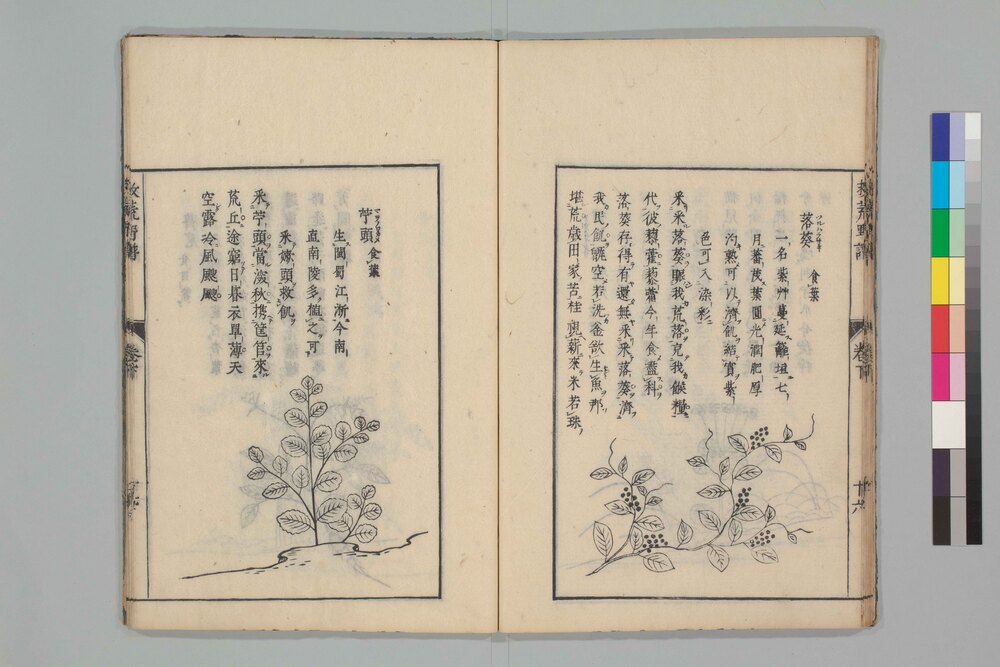 落葵
ツルムラサキ
食葉
一名紫艸蔓延籬垣七
月蕃茂葉圓光潤肥厚
汋熟可以濟飢結實紫
色可入染彩
采采落葵賑我荒落充我餱糧
代彼藜藿藜藿今年食盡科
落葵存得有還無采采落葵濟
我民飢甑空若洗釜欲生魚那
堪荒歲田家苦桂視薪來米若珠
苧頭
食葉
生閩蜀江浙今南
直南陵多植之可
采嫩頭救飢
采苧頭當歲秋携筐筥來
荒丘途窮日暮衣單薄天
空露冷風颼颼
救荒野譜
卷下
廿六